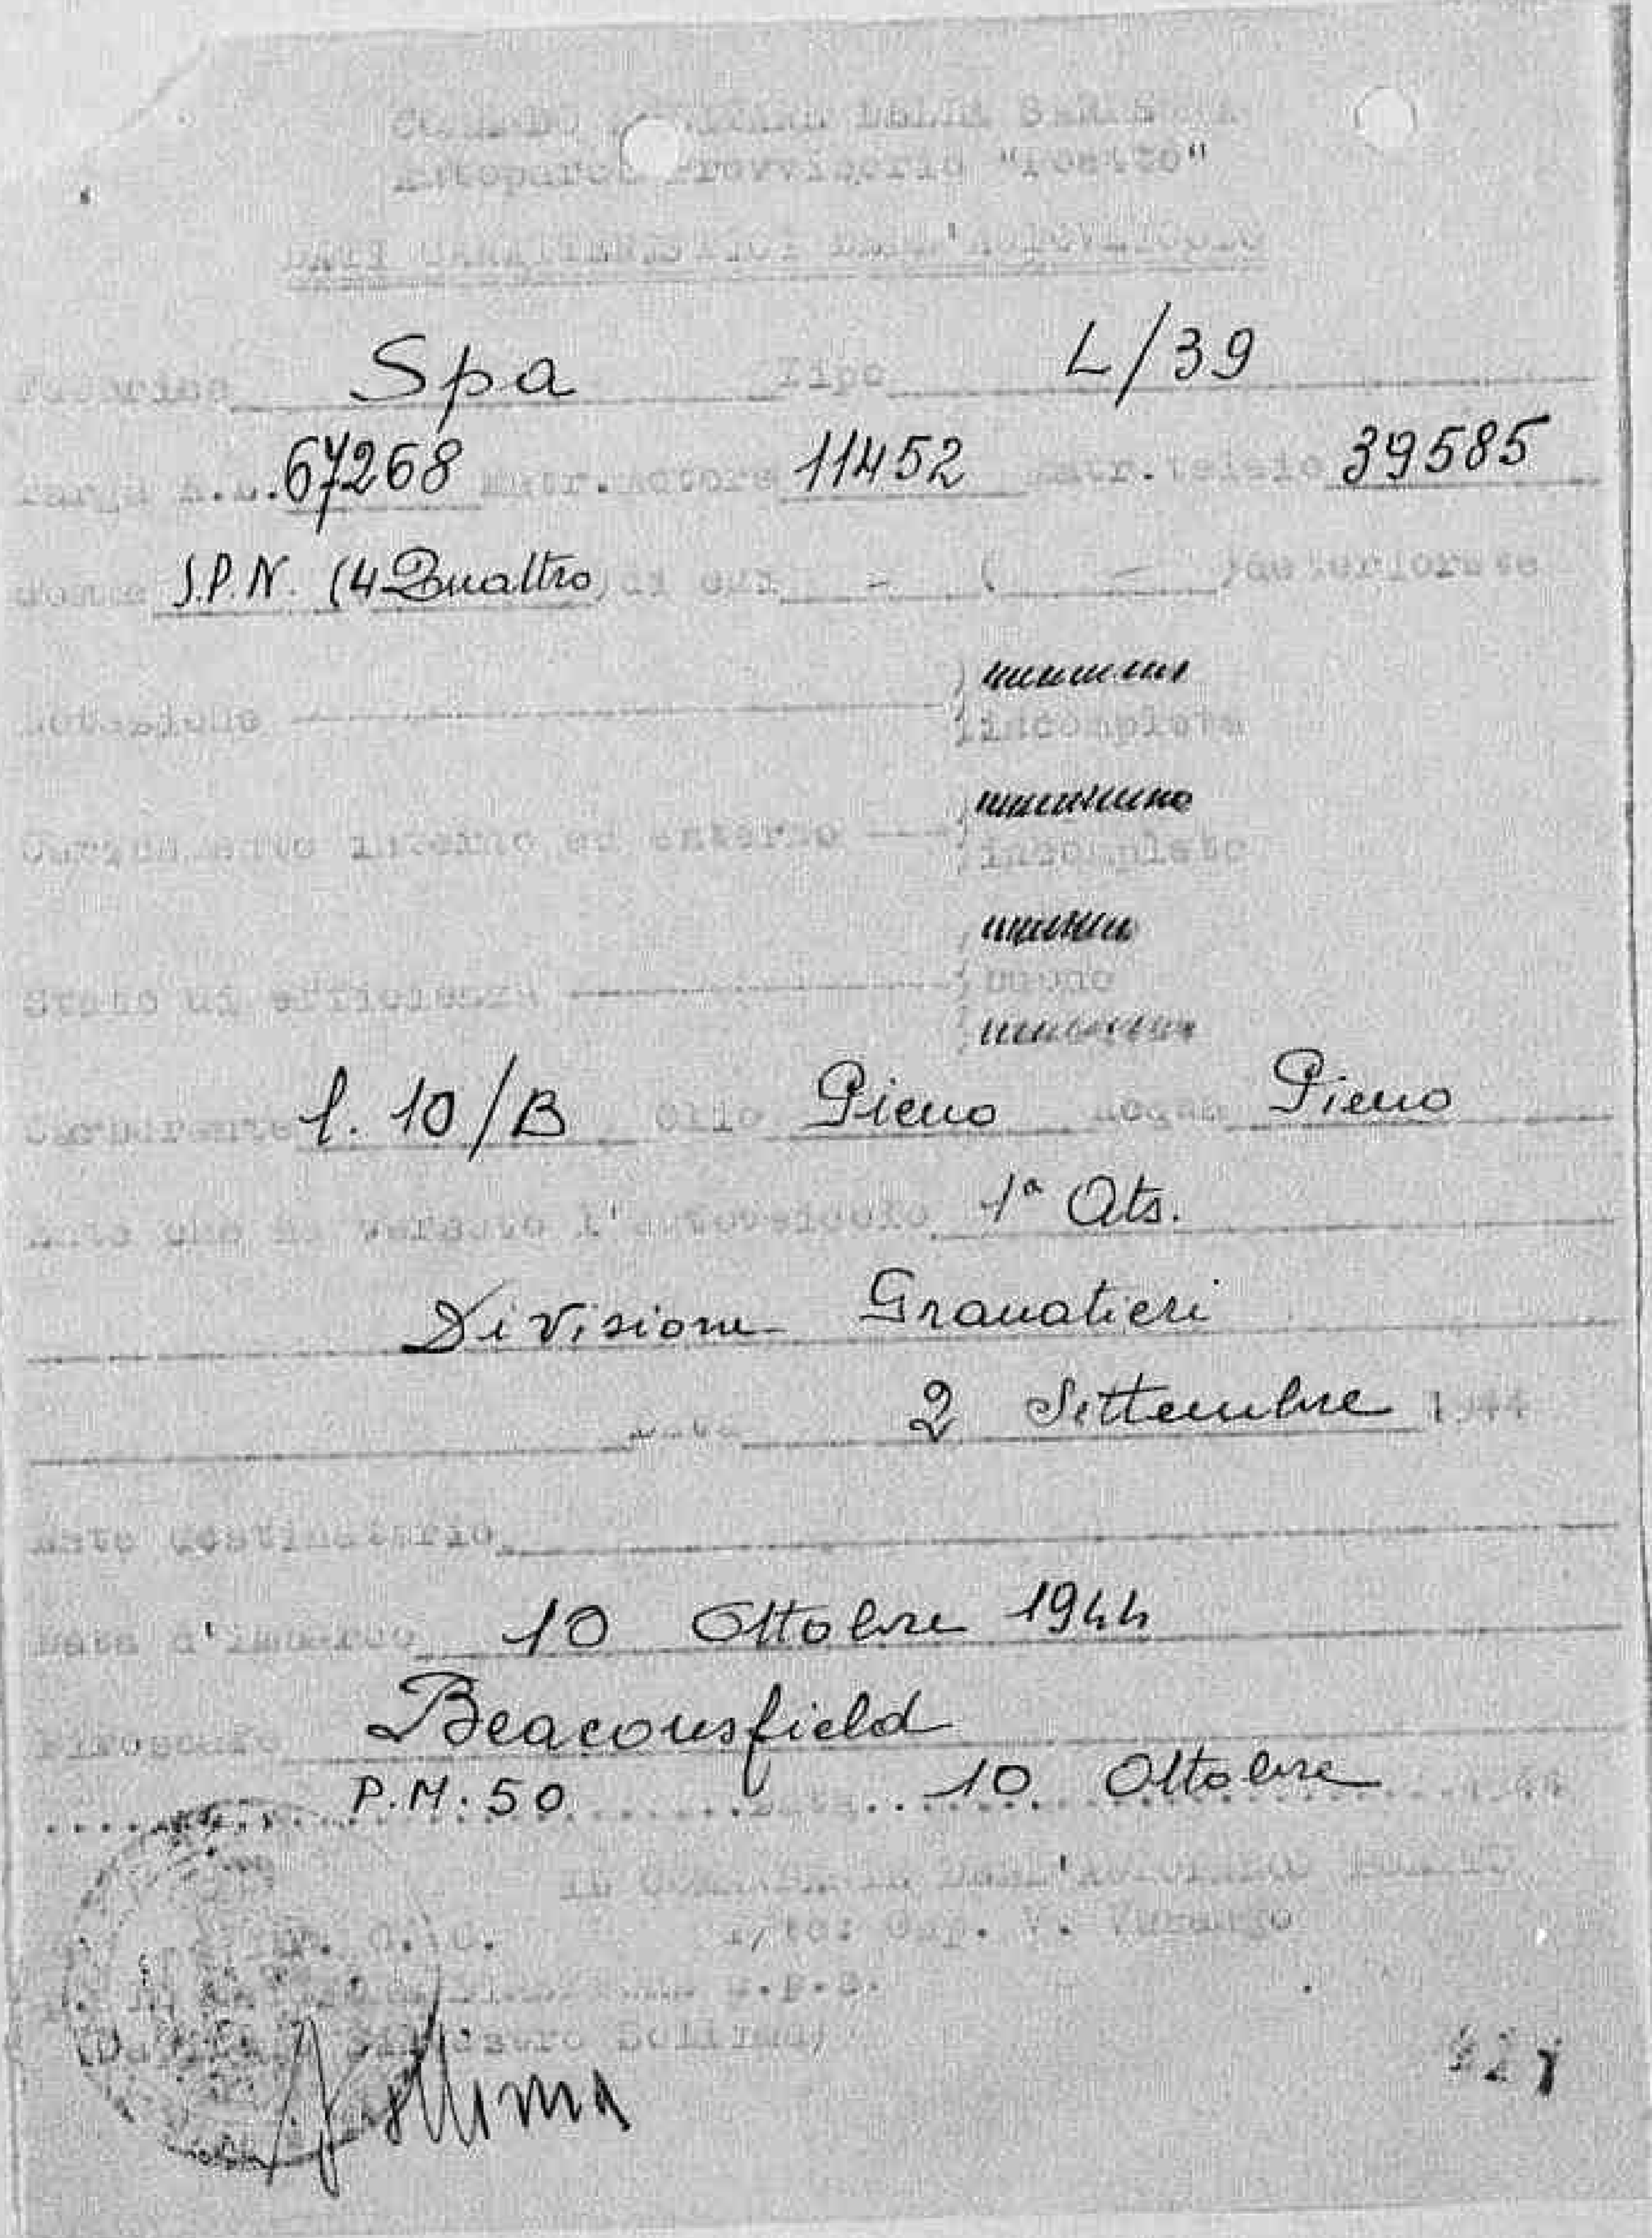 COMANDO MILITARE DELLA SARDEGNA
Autoparco Provvisorio "Poetto"
DATI CARATTERISTICI DELL'AUTOVEICOLO
Fabbrica Spa Tipo L/39
Targa R.E. 67268 Matr.motore 11452 Matr.telaio 39585
Gomme S.P.N. (4 Quattro) di cui = ( = ) deteriorate
Dotazione
incompleta
Caricamento interno ed esterno
incompleto
Stato di efficienza
buono
Carburante l. 10/B Olio Pieno Acqua Pieno
Ente che ha versato l'autoveicolo 1ª Ats.
Divisione Granatieri
Data 2 Settembre 1944
Ente destinatario
Data d'imbarco 10 Ottobre 1944
Piroscafo Beaconsfield
P.M. 50 Data 10 Ottobre 1944
IL COMANDANTE DELL'AUTOPARCO
F/to: Cap. V.